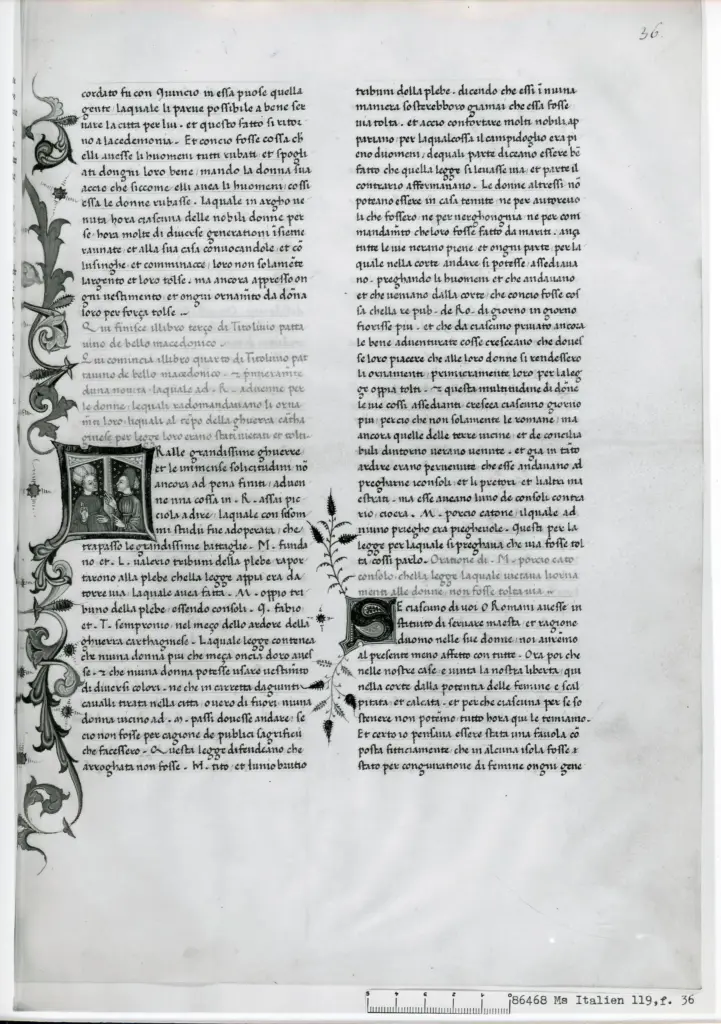 36
cordato fu con Quincio in essa puose quella
gente laquale li parue possibile a bene ser
uare la citta per lui . et questo fatto si ritor
no a lacedemonia . Et concio fosse cossa ch
elli auesse li huomeni tutti rubati et spogli
ati dongni loro bene / mando la donna sua
accio che siccome elli auea li huomeni / cossi
essa le donne rubasse . Laquale in argho ue
nuta hora ciascuna delle nobili donne per
se / hora molte di diuerse generationi insieme
raunate / et alla sua casa conuocandole / et cō
lusinghe et comminacce / loro non solamēte
largento et loro tolse . ma ancora appresso on
gni uestimento et ongni ornamēto da dōna
loro per força tolse .
Qui finisce illibro terço di Titoliuio patta
uino de bello macedonico .
Qui comincia illibro quarto di Titoliuio pat
tauino de bello macedonico . et primeramēte
duna nouita laquale ad . R . aduenne per
le donne / lequali radomandauano li orna
mēti loro / liquali al tēpo della ghuerra cartha
ginese per legge loro erano stati uietati et tolti .
TRalle grandissime ghuerre
et le immense solicitudini nō
ancora ad pena finiti / aduen
ne una cossa in . R . assai pic
ciola a dire / laquale con som
mi studii fue adoperata / che
trapasso le grandissime battaglie . M . funda
no et . L . ualerio tribuni della plebe rapor
tarono alla plebe chella legge appia era da
torre uia laquale auea fatta . M . oppio tri
buno della plebe essendo consoli . Q . fabio
et . T . sempronio nel meço dello ardore della
ghuerra carthaginese . Laquale legge contenea
che niuna donna piu che meça oncia doro aues
se . et che niuna donna potesse usare uestimēto
di diuersi colori . ne che in carretta da giunti
caualli tirata nella citta ouero di fuori niuna
donna uicino ad . M . passi douesse andare / se
cio non fosse per cagione de publici sagrificii
che facessero . Questa legge difendeano che
arroghata non fosse . M . tito et Iunio bruttio
tribuni della plebe . dicendo che essi ī niuna
maniera sosterebboro giamai che essa fosse
uia tolta . et accio confortare molti nobili ap
pariano / per laqualcossa il campidoglio era pi
eno duomeni / dequali parte diceano essere bē
fatto che quella legge si leuasse uia / et parte il
contrario affermauano . Le donne altressi nō
poteano essere in casa tenute ne per autoreuo
li che fossero / ne per uerghongnia / ne per com
mandamēto che loro fosse fatto da mariti . ança
tutte le uie nerano piene et ongni parte per la
quale nella corte andare si potesse / assediaua
no . preghando li huomeni et che andauano
et che ueniano dalla corte / che concio fosse cos
sa chella re pub . de Ro . di giorno in giorno
fiorisse piu . et che da ciascuno priuato ancora
le bene aduenturate cosse cresceano / che doues
se loro piacere che alle loro donne si rendessero
li ornamenti primieramente loro per la leg
ge oppia tolti . et questa multitudine di dōne
le uie cossi assedianti crescea ciascuno giorno
piu / percio che non solamente le romane / ma
ancora quelle delle terre uicine et de concilia
buli dintorno uerano uenute . et gia in tāto
ardire erano peruenute che esse andauano ad
pregharne iconsoli et li pretori et li altri ma
estrati . ma esse aueano luno de consoli contra
rio / cio era . M . porcio catone / il quale ad
niuno priegho era pregheuole . Questi per la
legge per laquale si preghaua che uia fosse tol
ta cossi parlo . Oratione di . M . porcio cato
consolo / chella legge laquale uietaua li orna
menti alle donne non fosse tolta uia .
SE ciascuno di uoi O Romani auesse in
stituto di seruare maesta et ragione
duomo nelle sue donne / noi auremo
al presente meno affetto con tutte . Ora poi che
nelle nostre case e uinta la nostra liberta / qui
nella corte dalla potentia delle femine e scal
pitata et calcata . et perche ciascuna per se so
stenere non potemo / tutto hora qui le temiamo .
Et certo io pensaua essere stata una fauola cō
posta fitticiamente / che in alcuna isola fosse
stato per congiuratione di femine ongni gene
86468 Ms Italien 119, f. 36